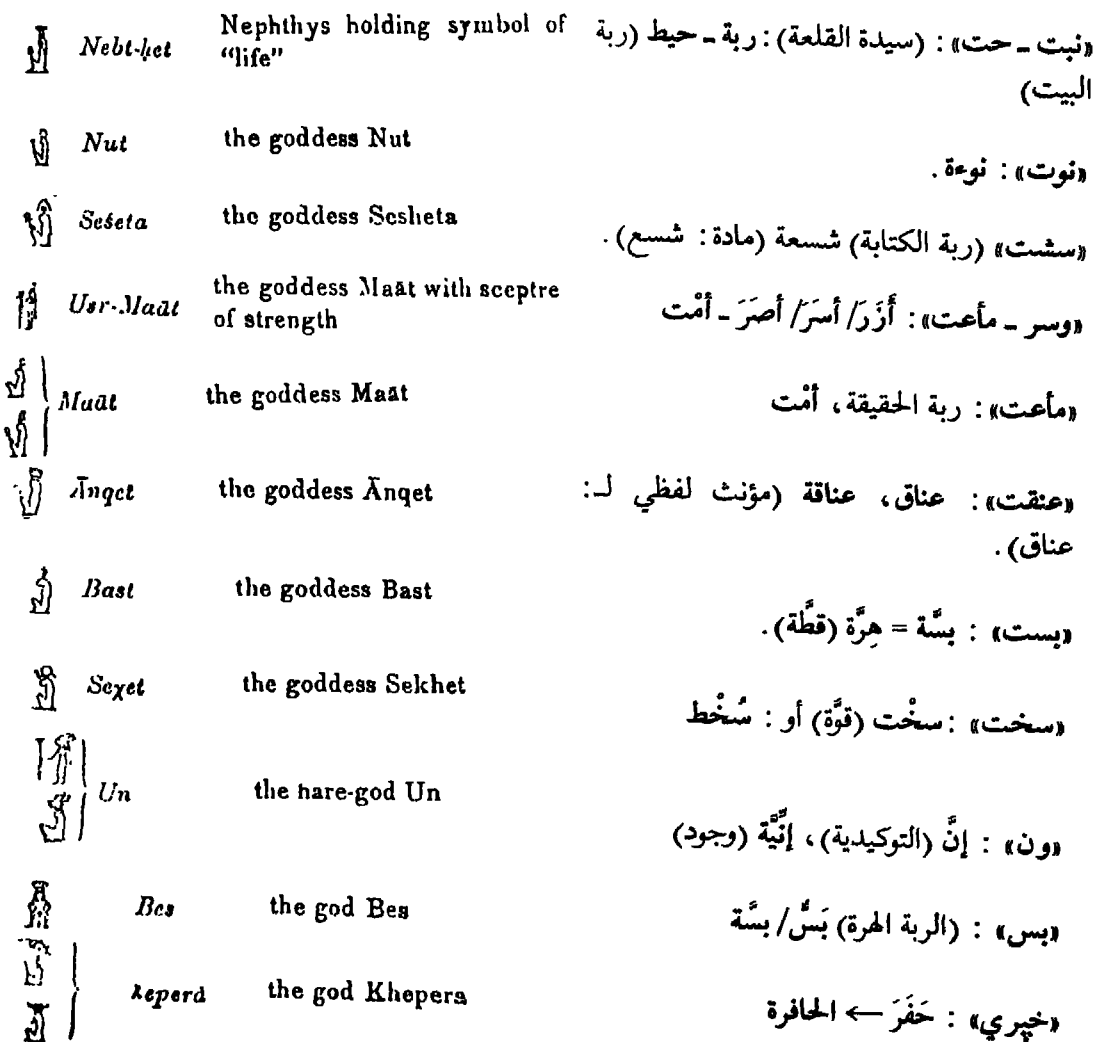 Nebt-ḥet Nephthys holding symbol of «نبت - حت» : (سيدة القلعة) : ربة - حيط (ربة
“life” البيت)
Nut the goddess Nut «نوت» : نوءة .
Sešeta the goddess Sesheta «سشت» (ربة الكتابة) شسعة (مادة : شسع) .
Usr-Maāt the goddess Maāt with sceptre «وسر - مأعت» : أَزَرَ/ أسَرَ/ أصَرَ - أمْت
of strength
Maāt the goddess Maāt «مأعت» : ربة الحقيقة، أمْت
Ānqet the goddess Ānqet «عنقت» : عناق، عناقة (مؤنث لفظي لـ :
عناق) .
Bast the goddess Bast «بست» : بسَّة = هِرَّة (قطَّة) .
Seχet the goddess Sekhet «سخت» : سخْت (قوَّة) أو : سُخْط
Un the hare-god Un «ون» : إنَّ (التوكيدية)، إنِّيَّة (وجود)
Bes the god Bes «بس» : (الربة الهرة) بَسٌّ/ بسَّة
the god Khepera «خپري» : حَفَرَ ← الحافرة